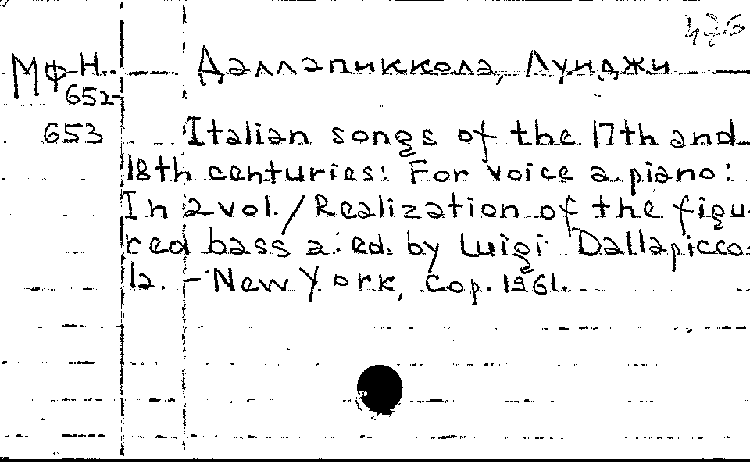 476
МФ-Н
652-
653
Даллапиккола, Луиджи
Italian songs of the 17th and
18th centuries: For voice a. piano:
In 2 vol. / Realization of the figu-
red bass a. ed. by Luigi Dallapicco-
la. - New York, Cop. 1961.